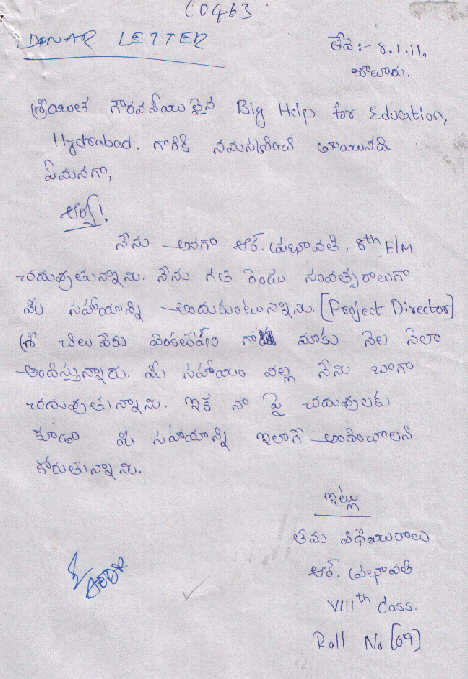 C0463
DONAR LETTER
తేది:- 8.1.11,
బాలూరు.
శ్రీయుత గౌరవనీయులైన Big Help for Education,
Hyderabad. గారికి నమస్కరించి వ్రాయునది
ఏమనగా,
ఆర్యా!
నేను అనగా ఆర్. ప్రభావతి, 8th E/M
చదువుచున్నాను. నేను గత రెండు సంవత్సరాలుగా
మీ సహాయాన్ని అందుకుంటున్నాను. [Project Director]
శ్రీ వెంకటేష్ గారు మాకు నెల నెలా
అందిస్తున్నారు. మీ సహాయం వల్ల నేను బాగా
చదువుచున్నాను. ఇక నా పై చదువులకు
కూడా మీ సహాయాన్ని ఇలాగే అందించాలని
కోరుచున్నాను.
ఇట్లు
తమ విధేయురాలు
ఆర్. ప్రభావతి
VIIIth Class.
Roll No [09]